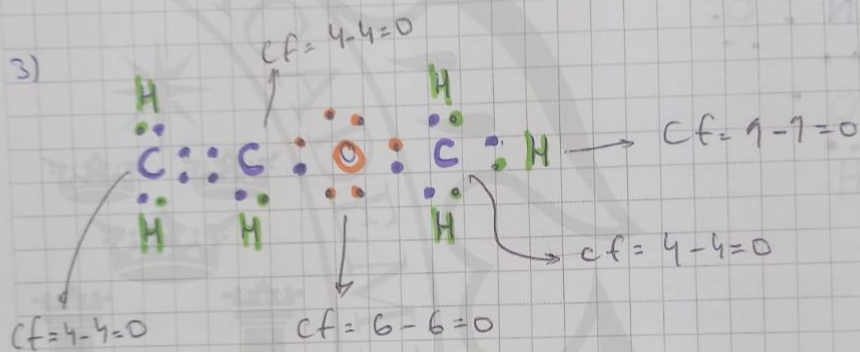 cf= 4-4=0
3)
H H
C :: C : O : C : H → Cf= 1-1=0
H H H
cf= 4-4=0
Cf=4-4=0 Cf= 6-6=0